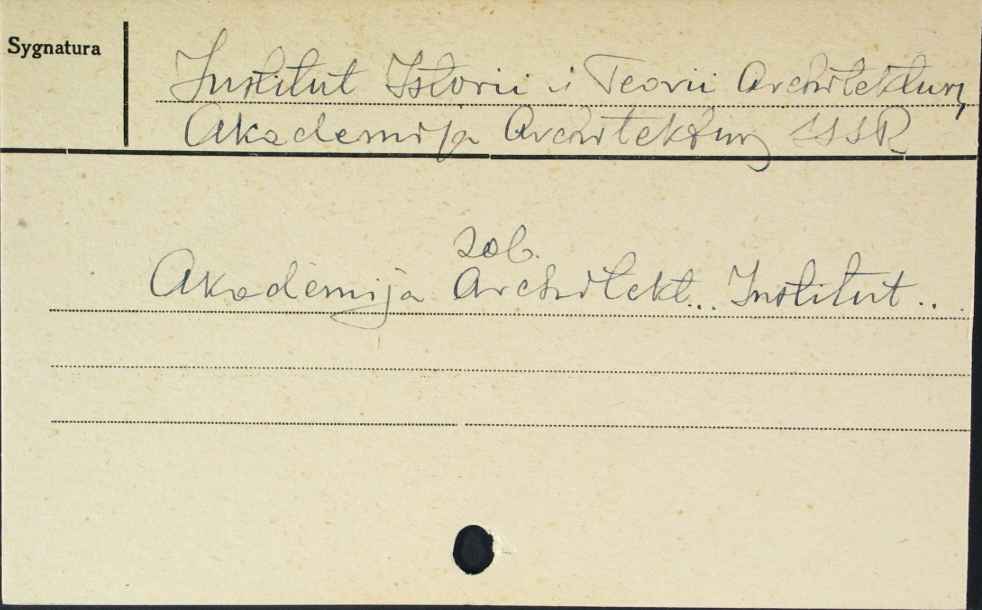 Sygnatura
Institut Istorii i Teorii Architektury
Akademija Architektury SSSR
zob.
Akademija Architekt... Institut...